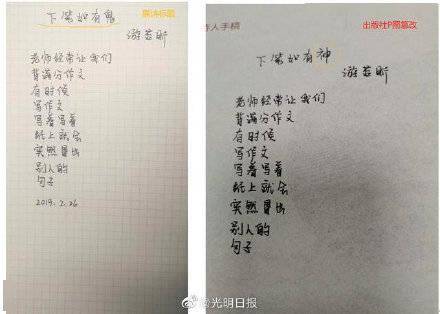 下笔如有鬼
原诗标题
游若昕
老师经常让我们
背满分作文
有时候
写作文
写着写着
纸上就会
突然冒出
别人的
句子
2019.2.26
诗人手稿
出版社P图篡改
下笔如有神
游若昕
老师经常让我们
背满分作文
有时候
写作文
写着写着
纸上就会
突然冒出
别人的
句子
@光明日报